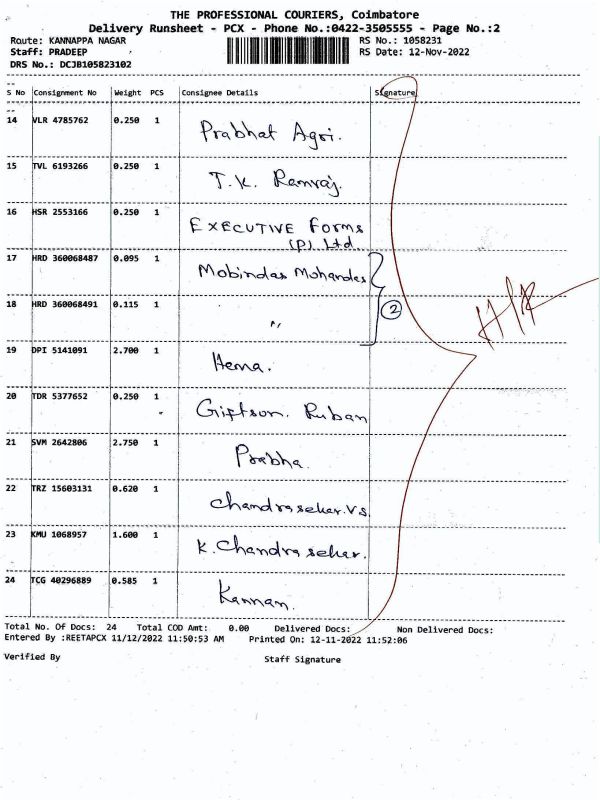 THE PROFESSIONAL COURIERS, Coimbatore
Delivery Runsheet - PCX - Phone No.:0422-3505555 - Page No.:2
Route: KANNAPPA NAGAR RS No.: 1058231
Staff: PRADEEP RS Date: 12-Nov-2022
DRS No.: DCJB105823102
S No Consignment No Weight PCS Consignee Details Signature
14 VLR 4785762 0.250 1 Prabhat Agri.
15 TVL 6193266 0.250 1 T.K. Ramraj.
16 HSR 2553166 0.250 1 EXECUTIVE Forms
(P) Ltd.
17 HRD 360068487 0.095 1 Mobindas Mohandas
2
18 HRD 360068491 0.115 1 "
19 DPI 5141091 2.700 1 Hema.
20 TDR 5377652 0.250 1 Giftson. Ruban
21 SVM 2642806 2.750 1 Prabha.
22 TRZ 15603131 0.620 1 Chandrasekar.V.S.
23 KMU 1068957 1.600 1 K. Chandrasekar.
24 TCG 40296889 0.585 1 Kannan.
Total No. Of Docs: 24 Total COD Amt: 0.00 Delivered Docs: Non Delivered Docs:
Entered By :REETAPCX 11/12/2022 11:50:53 AM Printed On: 12-11-2022 11:52:06
Verified By Staff Signature